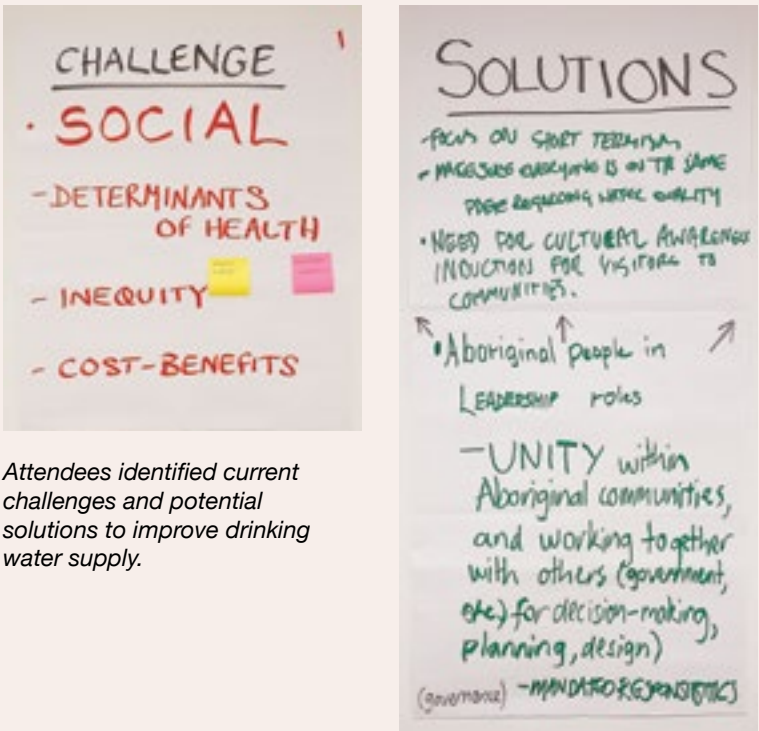 1
CHALLENGE
• SOCIAL
- DETERMINANTS
OF HEALTH
- INEQUITY
- COST-BENEFITS
Attendees identified current
challenges and potential
solutions to improve drinking
water supply.
SOLUTIONS
- FOCUS ON SHORT TERMISM
- MAKE SURE EVERYONE IS ON THE SAME
PAGE REGARDING WATER QUALITY
• NEED FOR CULTURAL AWARENESS
INDUCTION FOR VISITORS TO
COMMUNITIES.
• Aboriginal people in
LEADERSHIP roles
- UNITY within
Aboriginal communities,
and working together
with others (government,
etc) for decision-making,
planning, design)
(governance) -